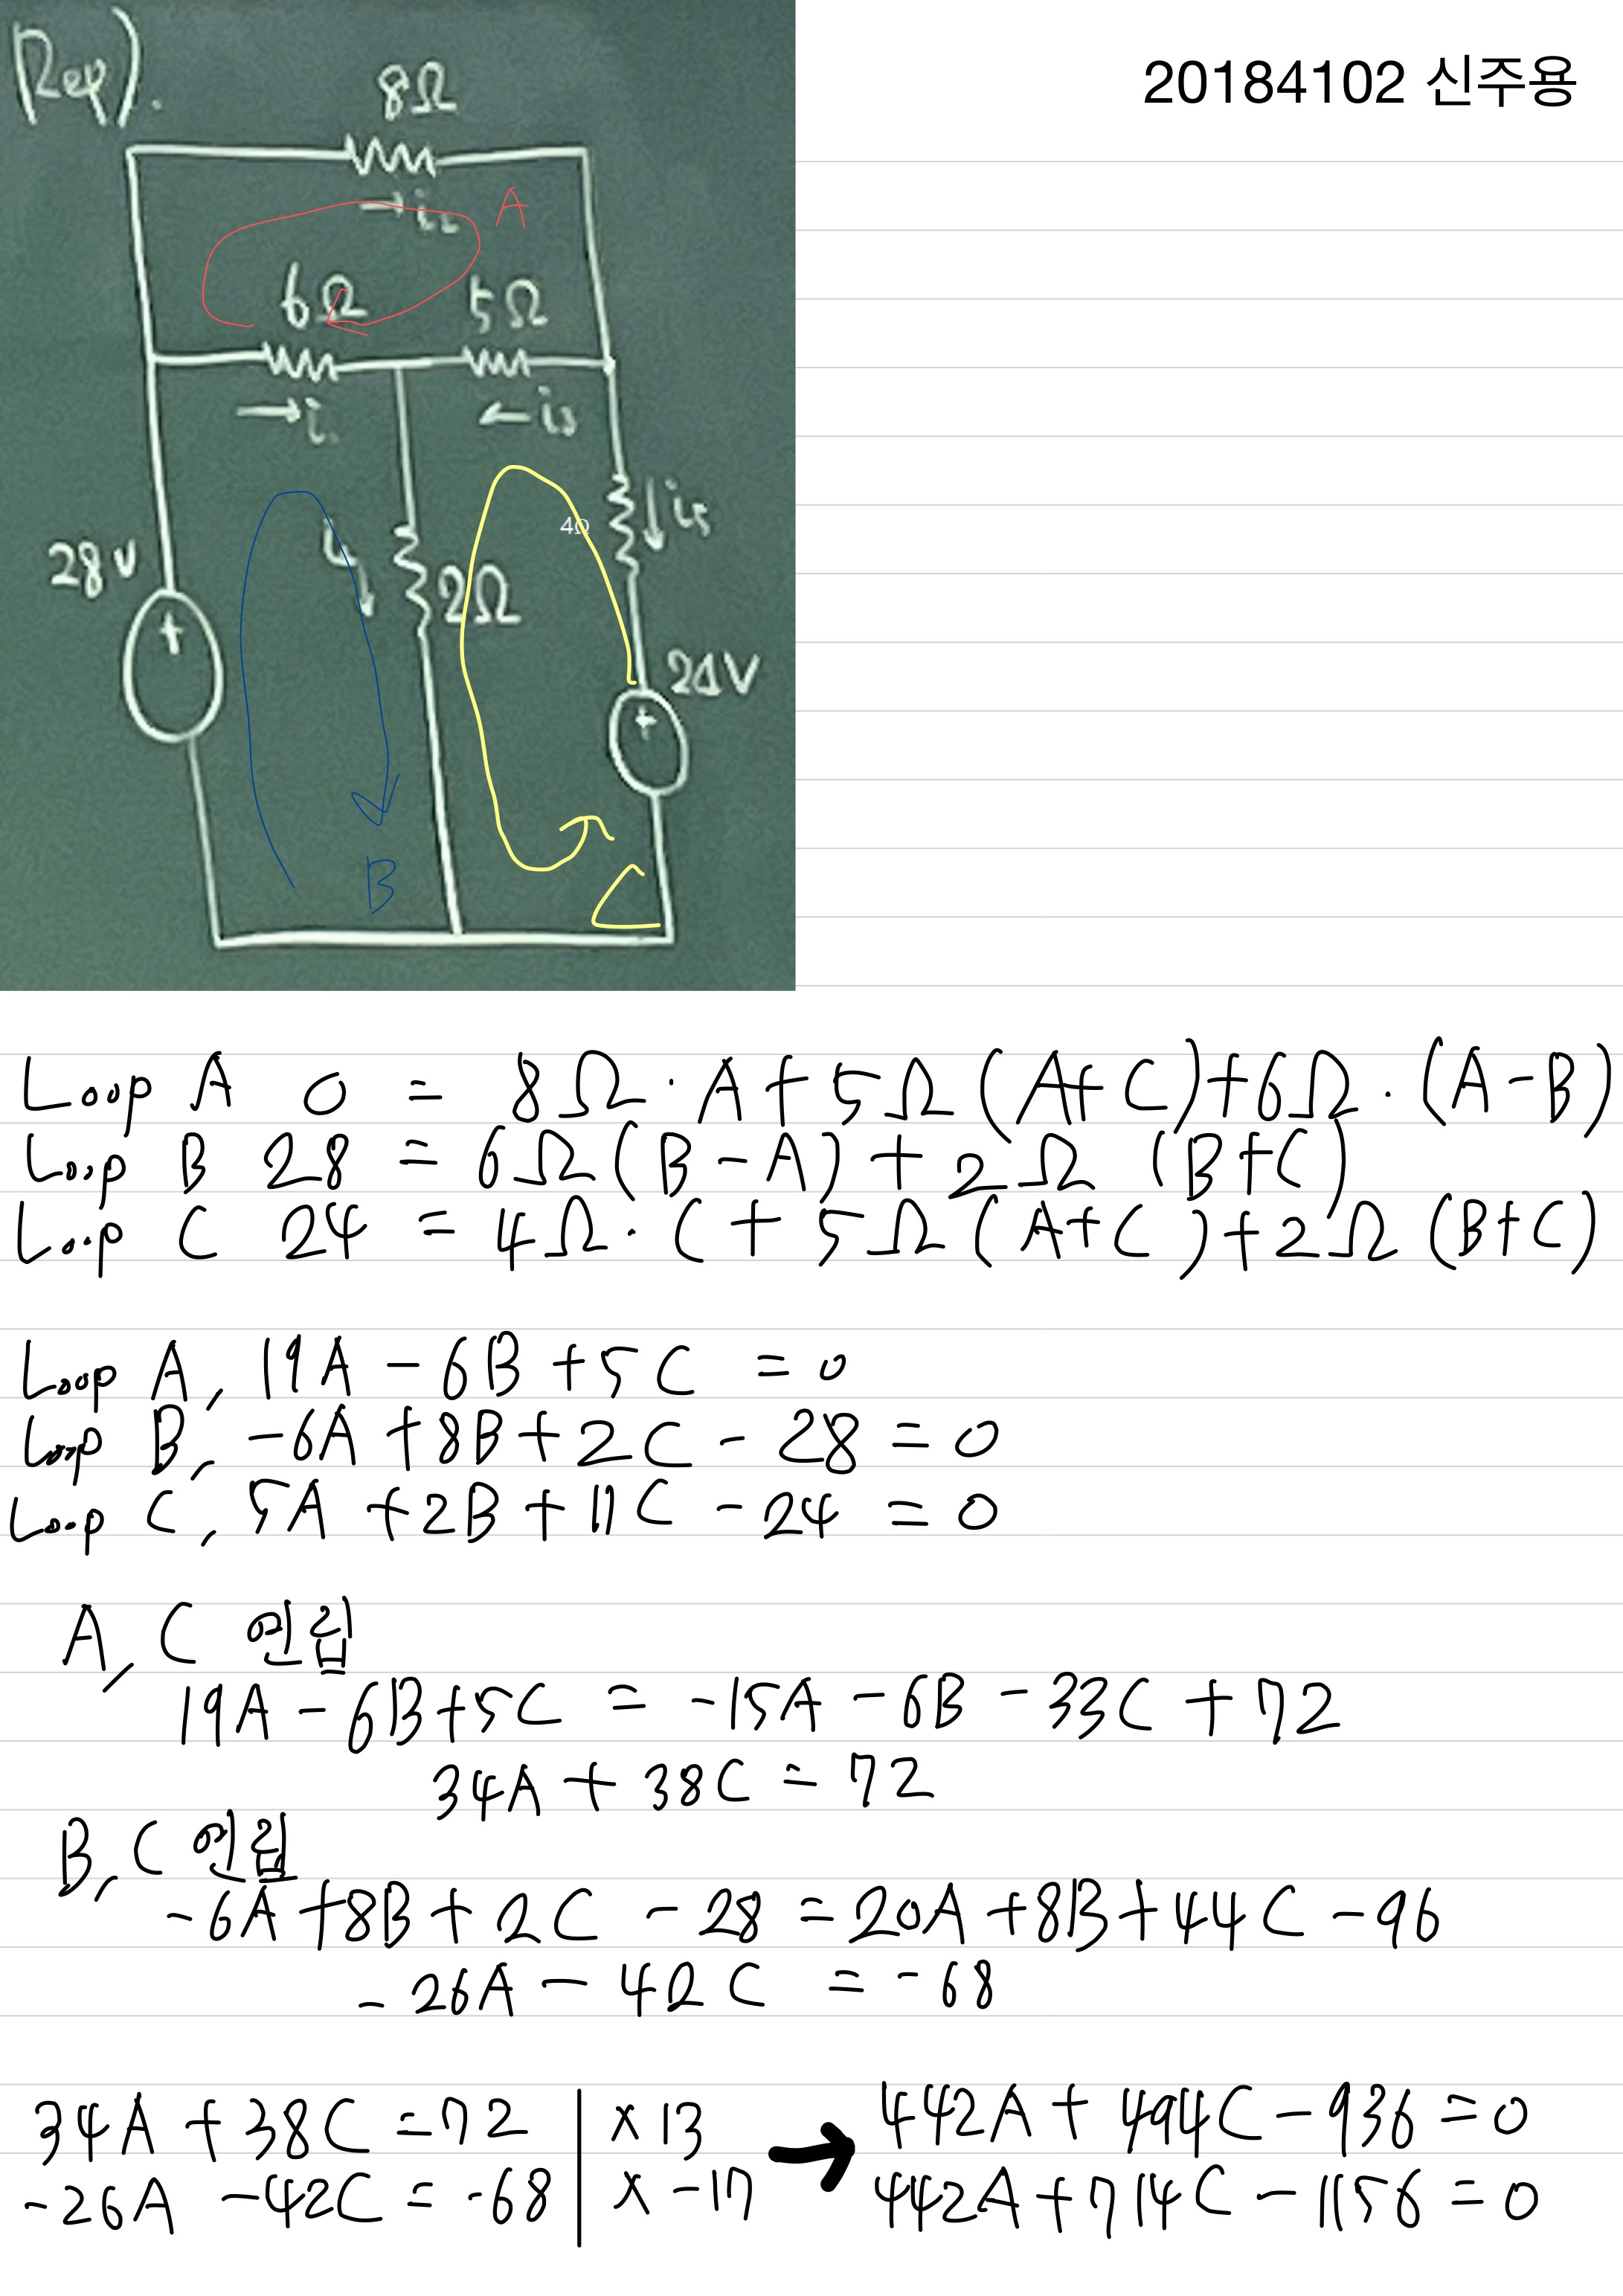 Rep).
20184102 신주용
8Ω
→ i₂
A
6Ω
5Ω
→ i₁
← i₃
i₄
4Ω
i₅
28V
2Ω
24V
B
C
Loop A 0 = 8Ω · A + 5Ω (A+C) + 6Ω · (A-B)
Loop B 28 = 6Ω (B-A) + 2Ω (B+C)
Loop C 24 = 4Ω · C + 5Ω (A+C) + 2Ω (B+C)
Loop A, 19A - 6B + 5C = 0
Loop B, -6A + 8B + 2C - 28 = 0
Loop C, 5A + 2B + 11C - 24 = 0
A, C 연립
19A - 6B + 5C = -15A - 6B - 33C + 72
34A + 38C = 72
B, C 연립
-6A + 8B + 2C - 28 = 20A + 8B + 44C - 96
-26A - 42C = -68
34A + 38C = 72 | ×13 → 442A + 494C - 936 = 0
-26A - 42C = -68 | × -17 442A + 714C - 1156 = 0